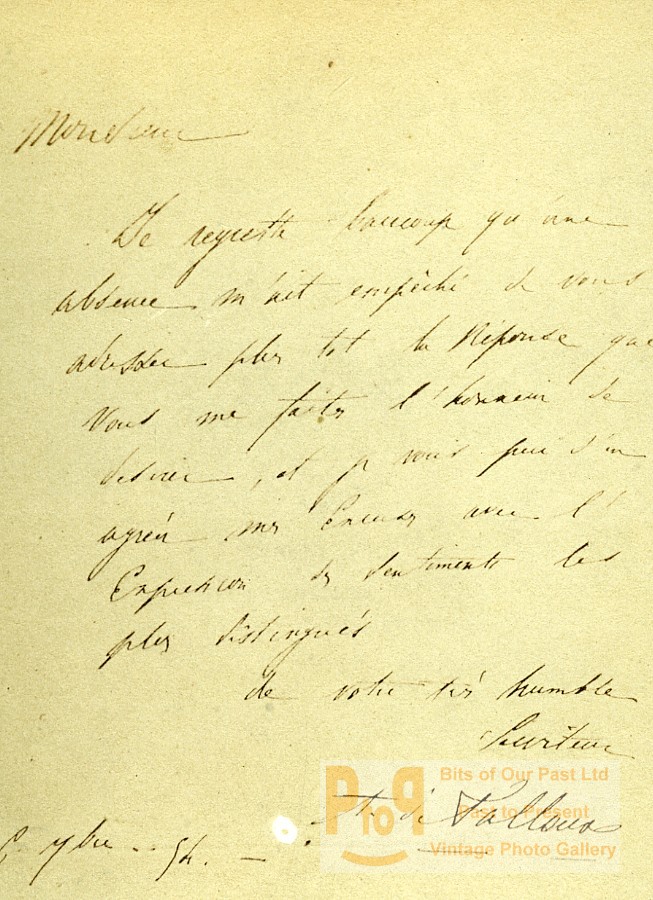 Monsieur
Je regrette beaucoup qu'une
absence m'ait empêché de vous
adresser plus tot la Réponse que
Vous me faites l'honneur de
desirer, et je vous prie d'en
agréer mes Excuses avec l'
Expression des sentiments les
plus distingués
de votre très humble
Serviteur
Bits of Our Past Ltd
PtoP
Past to Present
de Falloux
Vintage Photo Gallery
7bre 54.